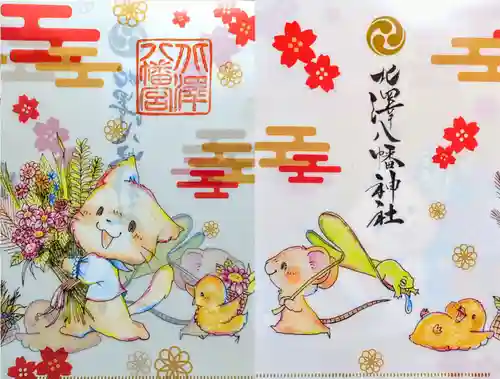 北澤八幡神社
北澤
八幡宮